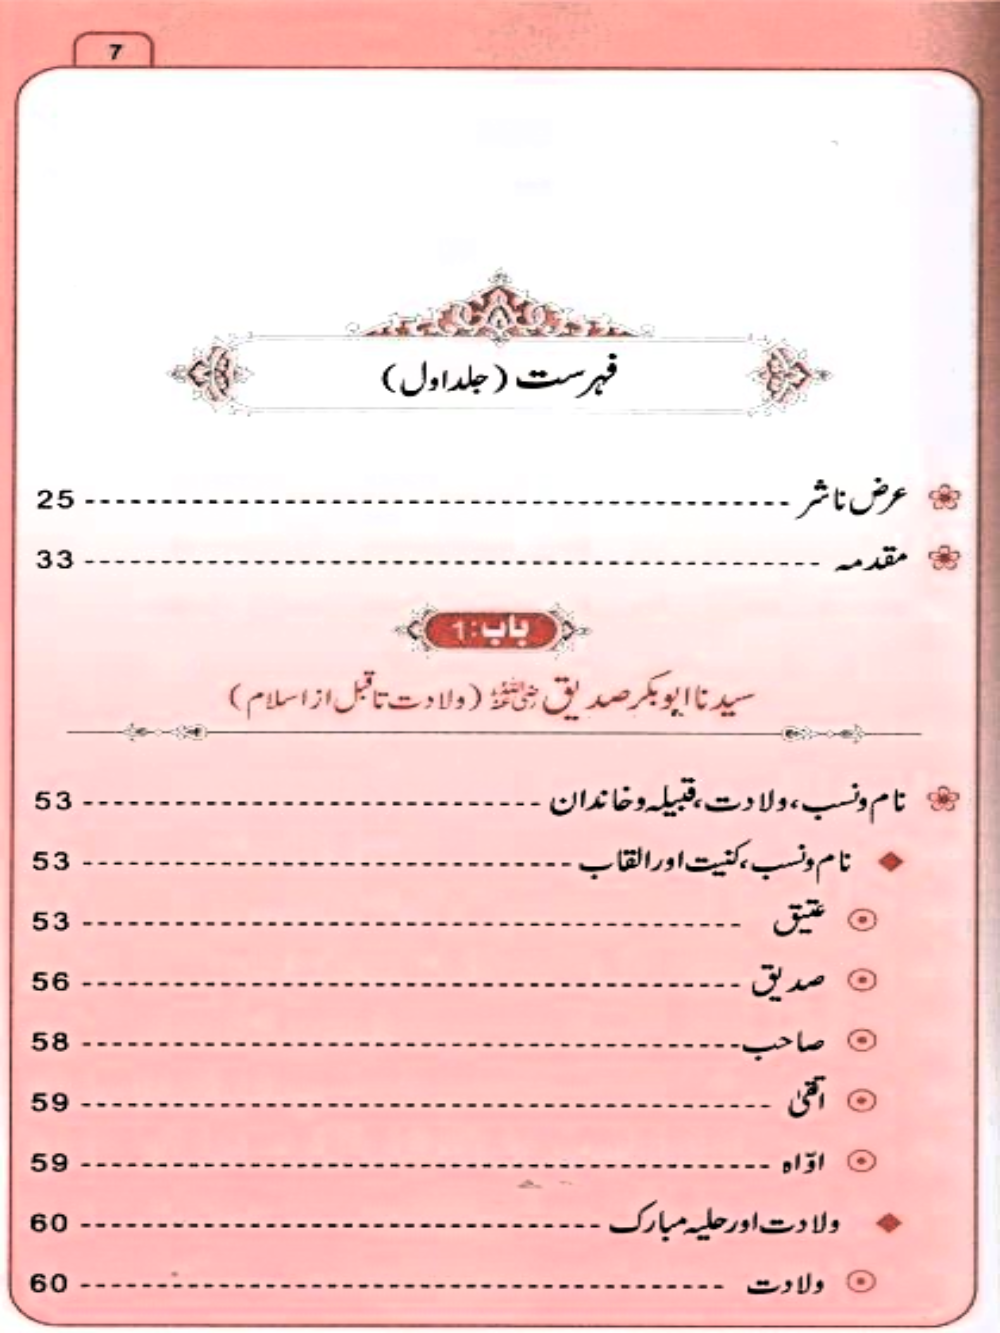 7
فہرست (جلد اول)
عرض ناشر ------------------------------------------------ 25
مقدمہ ------------------------------------------------ 33
باب: 1
سیدنا ابوبکر صدیق رضی اللہ عنہ (ولادت تا قبل از اسلام)
نام و نسب، ولادت، قبیلہ و خاندان -------------------------------- 53
نام و نسب، کنیت اور القاب -------------------------------- 53
عتیق -------------------------------------------- 53
صدیق -------------------------------------------- 56
صاحب -------------------------------------------- 58
اتقیٰ ---------------------------------------------- 59
اوّاہ ---------------------------------------------- 59
ولادت اور حلیہ مبارک ---------------------------------- 60
ولادت ------------------------------------------- 60